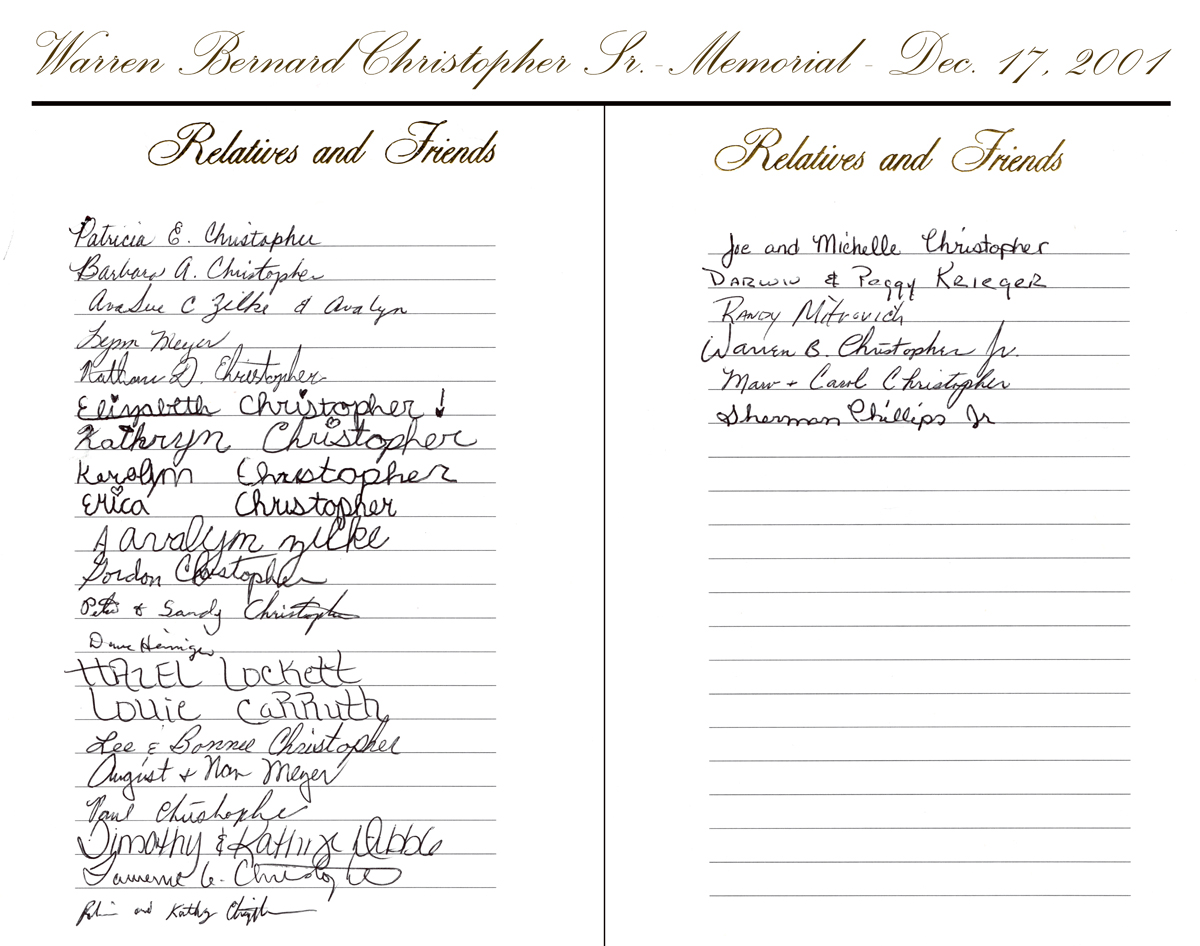 Warren Bernard Christopher Sr. - Memorial - Dec. 17, 2001
Relatives and Friends
Patricia E. Christopher
Barbara A. Christopher
AvaSue C Zilke & Avalyn
Lynn Meyer
Nathan D. Christopher
Elizabeth Christopher!
Kathryn Christopher
Karolyn Christopher
Erica Christopher
Avalyn Zilke
Gordon Christopher
Pete & Sandy Christopher
Dave
HAZEL Lockett
Louie CaRRuth
Lee & Bonnie Christopher
August + Nan Meyer
Paul Christopher
Timothy &
Christopher
and Kathy Christopher
Relatives and Friends
Joe and Michelle Christopher
DARWIN & Peggy KRIEGER
RANDY Mitrovich
Warren B. Christopher Jr.
+ Carol Christopher
Sherman Phillips Jr